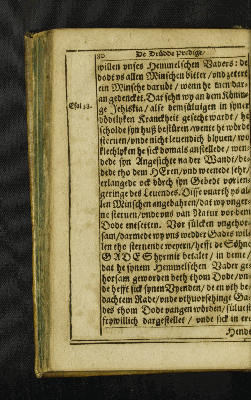 80 De Drüdde Predige/
willen vnses Hemmelschen Vaders: de
dodt ys allen Minschen bitter/ vnd gettert
ein Minsche darumme/ wenn he men dar-
an gedencket. Dar sehn wy an dem Könin-
Esai 38. ge Jehiskia/ alse demsüluigen in syner
dödtlyken Kranckheit gesecht warde/ he
scholde syn Huß bestüren/ wente he worde
steruen/ vnde nicht leuendich blyuen/ wo
 he sick domals anstellede/ wen-
dede syn Angesichte na der Wandt/ be-
dede tho dem HEren/ vnd weenede sehr/
erlangede ock dörch syn Gebedt
 des Leuendes. Disse vnardt ys al-
len Minschen angebahren/ dat wy vnger-
ne steruen/ vnde vns van Natur vor dem
Dode entsetten. Vor sülcken vngehor-
sam/ darmede wy vns wedder Gades wil-
len tho steruende weyern/ hefft de Söhne
GADES hyrmit betalet/ in deme/
dat he synem Hemmelschen Vader ge-
horsam geworden beth thom Dode/ vn-
de hefft sick synen Vyenden/ de en vth be-
dachtem Rade/ vnde vthuorsehinge Ga-
des thom Dode vangen wörden/ sülues
frywillich dargestellet/ vnde sick in ere
Hende